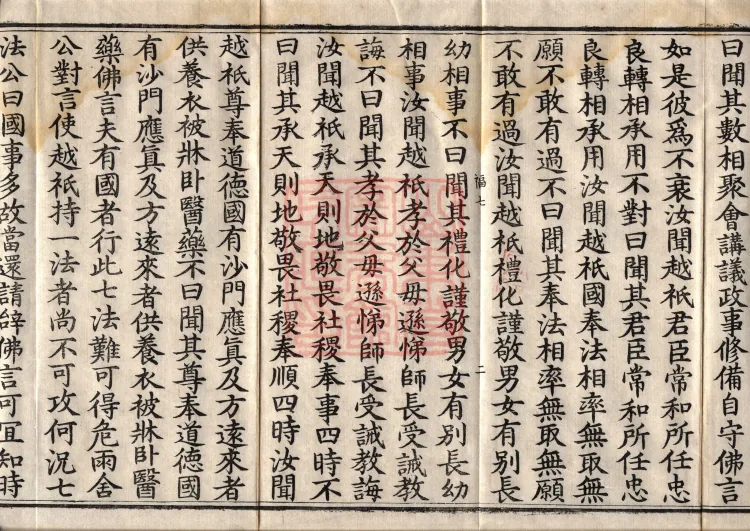 曰聞其數相聚會講議政事修備自守佛言
如是彼爲不衰汝聞越祇君臣常和所任忠
良轉相承用不對曰聞其君臣常和所任忠
良轉相承用汝聞越祇國奉法相率無取無
願不敢有過不曰聞其奉法相率無取無願
不敢有過汝聞越祇禮化謹敬男女有別長
福七 二
幼相事不曰聞其禮化謹敬男女有別長幼
相事汝聞越祇孝於父母遜悌師長受誡教
誨不曰聞其孝於父母遜悌師長受誡教誨
汝聞越祇承天則地敬畏社稷奉事四時不
曰聞其承天則地敬畏社稷奉順四時汝聞
越祇尊奉道德國有沙門應眞及方遠來者
供養衣被牀卧醫藥不曰聞其尊奉道德國
有沙門應眞及方遠來者供養衣被牀卧醫
藥佛言夫有國者行此七法難可得危雨舍
公對言使越祇持一法者尚不可攻何況七
法公曰國事多故當還請辝佛言可冝知時